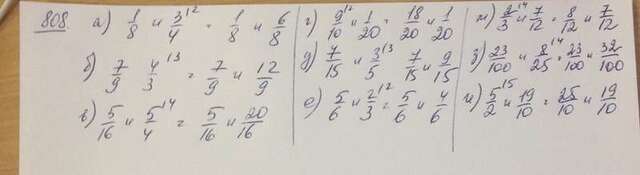 808 а) 1/8 и 3/4 ¹² = 1/8 и 6/8
б) 7/9 4/3 ¹³ = 7/9 и 12/9
в) 5/16 и 5/4 ¹⁴ = 5/16 и 20/16
г) 9/10 ¹² и 1/20 = 18/20 и 1/20
д) 7/15 и 3/5 ¹³ 7/15 и 9/15
е) 5/6 и 2/3 ¹² = 5/6 и 4/6
ж) 2/3 ¹⁴ и 7/12 = 8/12 и 7/12
з) 23/100 и 8/25 ¹⁴ = 23/100 и 32/100
и) 5/2 ¹⁵ и 19/10 = 25/10 и 19/10